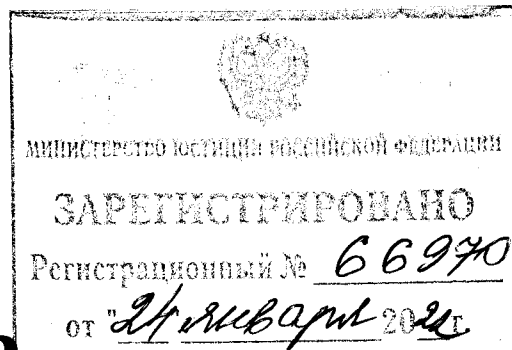 МИНИСТЕРСТВО ЮСТИЦИИ РОССИЙСКОЙ ФЕДЕРАЦИИ
ЗАРЕГИСТРИРОВАНО
Регистрационный № 66970
от "24" января 2022 г.